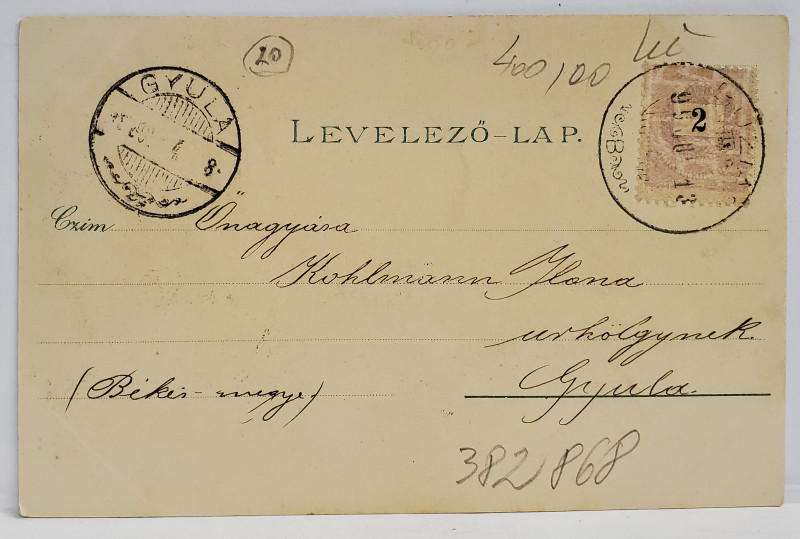 20
400,00
GYULA
8
2
LEVELEZŐ-LAP.
Czim Őnagyára
Kohlmann Ilona
urhölgynek.
(Békés-megye)
Gyula.
382868